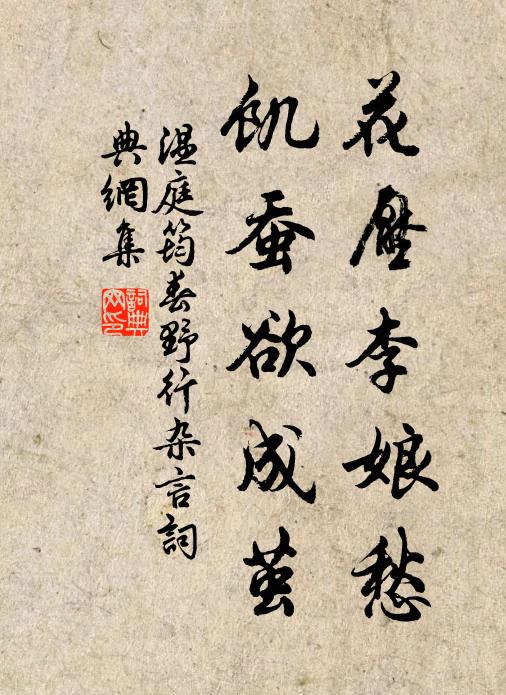 花壓李娘愁
飢蚕欲成茧
温庭筠春野行杂言詞
典網集
詞典网印